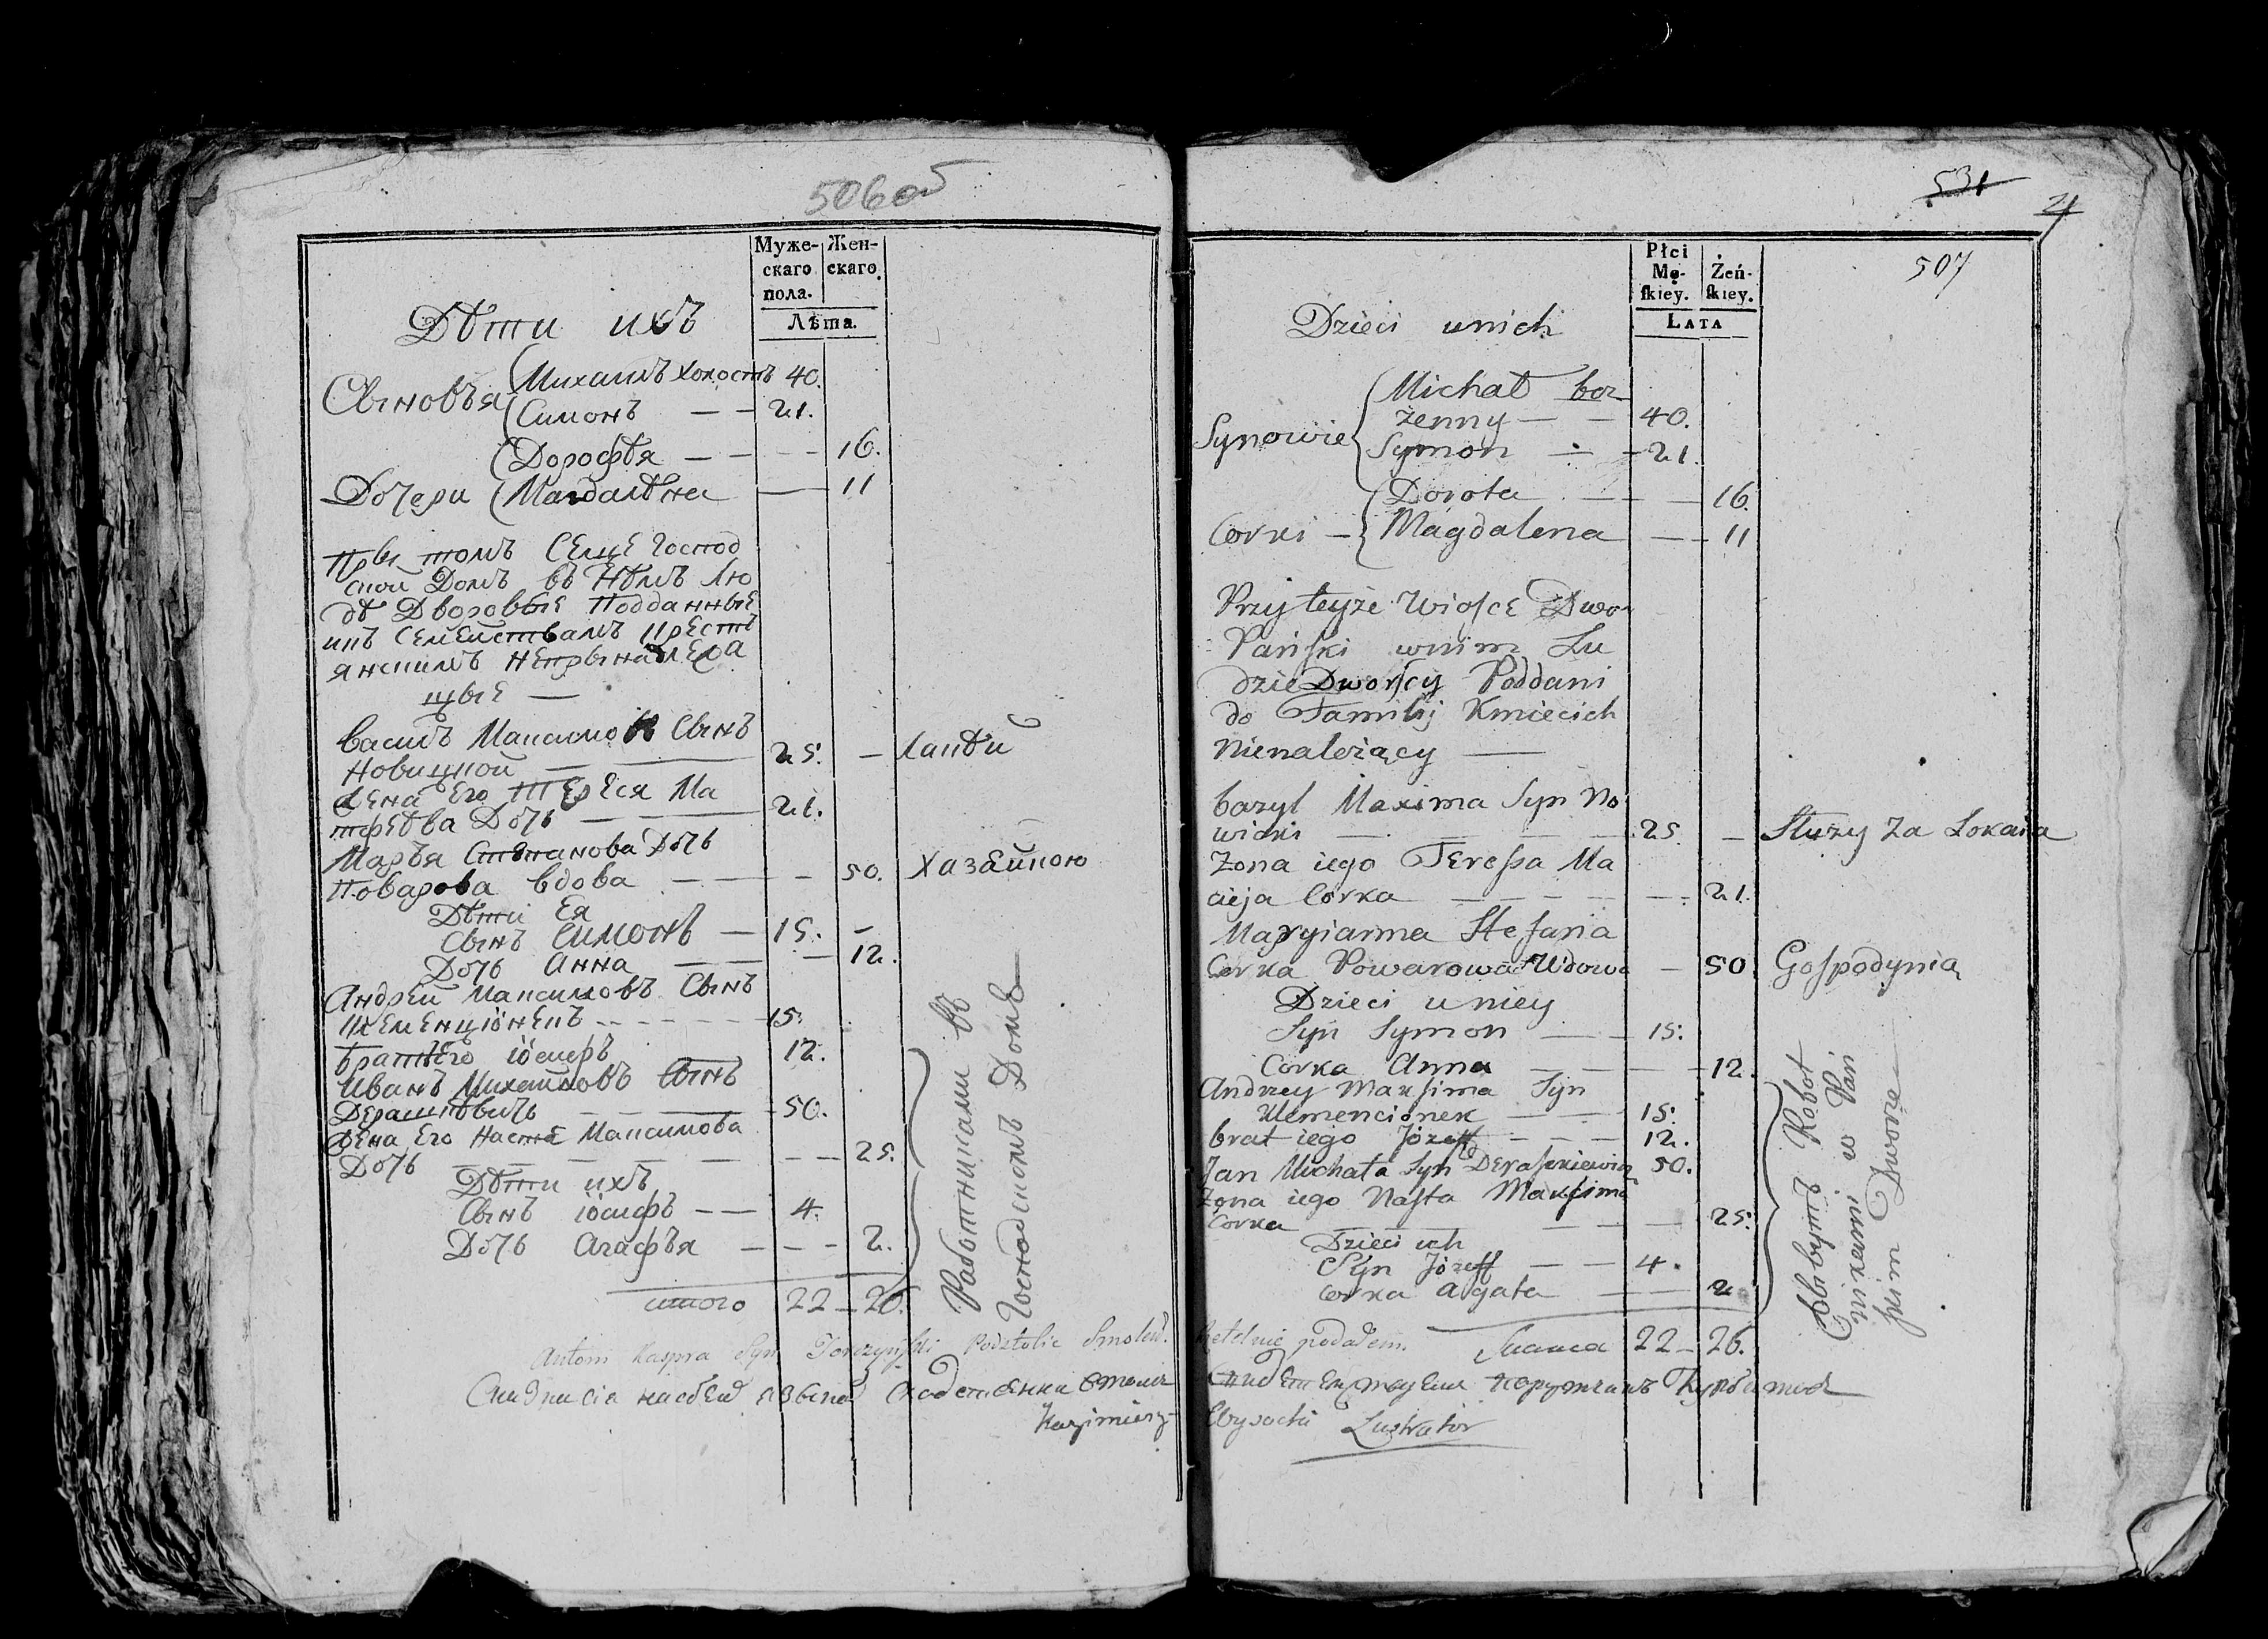 506об
Муже- Жен-
скаго скаго
пола.
Лѣта.
Дѣти ихъ
Сыновъя Михаилъ холостъ 40.
Симонъ — — 21.
Дорофѣя — — — — 16.
Дочери Магдалѣна — 11
Пры томъ Селце Господ
ской Домъ въ Нѣмъ Лю
дѣ Дворовые Подданные
къ Семействамъ Крестъ
янскимъ Непрынадлежа
щые —
Василъ Максимов Сынъ
Новицкой — — 25. — Лакѣй
Жена Его Тереся Ма
тфеѣва Дочь — — 21.
Маръя Стэпанова Дочь
Поварова вдова — — — 50. Хазайкою
Дѣти Ея
Сынъ Симонъ — 15. –
Дочь Анна — — — 12.
Андрей Максимовъ Сынъ
Клеменціонекъ - - - - - 15.
братъ Его іосифъ 12.
Иванъ Михайловъ Сынъ
Дерашкѣвичъ — — — 50.
Жена Его Настѣ Максимова
Дочь — — — — — — 25.
Дѣти ихъ
Сынъ іосифъ — — 4.
Дочь Агафъя — — — 2.
Работниками въ
Господскомъ Доме
итого 22 – 26.
Antoni Kaspra Syn Podstolic Smoleń.
Kazimierz
531
21
507
Płci
Mę- Żeń-
skiey. skiey.
LATA
Dzieci unich
Synowie Michał bez
żenny — — 40.
Symon — — 21.
Dorota — — 16.
Corki – Magdalena — – 11
Przy teyże Wiosce Dwor
Pański wnim Lu
dzie Dworscy Poddani
do Familij Kmiecich
Nienależący —
bazyl Maxima Syn No
wicki — — — — 25. – Służy za Lokaia
Zona iego Teressa Ma
cieja Corka — — — — 21.
Maryianna Stefana
Corka Powarowa Wdowa — 50. Gospodynią
Dzieci uniey
Syn Symon — — 15.
Corka Anna — — — 12.
Andrzey Maksima Syn
Klemencionek — — 15.
brat iego Józeff - - - 12.
Jan Michała Syn Deraszkiewicz 50.
Zona iego Nasta Maksima
Corka — — — — — 25.
Dzieci ich
Syn Józeff — — 4.
Corka Agata — — 2.
Robot
nikami w Pań
skim Dworze
Rzetelnie podałem. Summa 22 – 26.
Lustrator